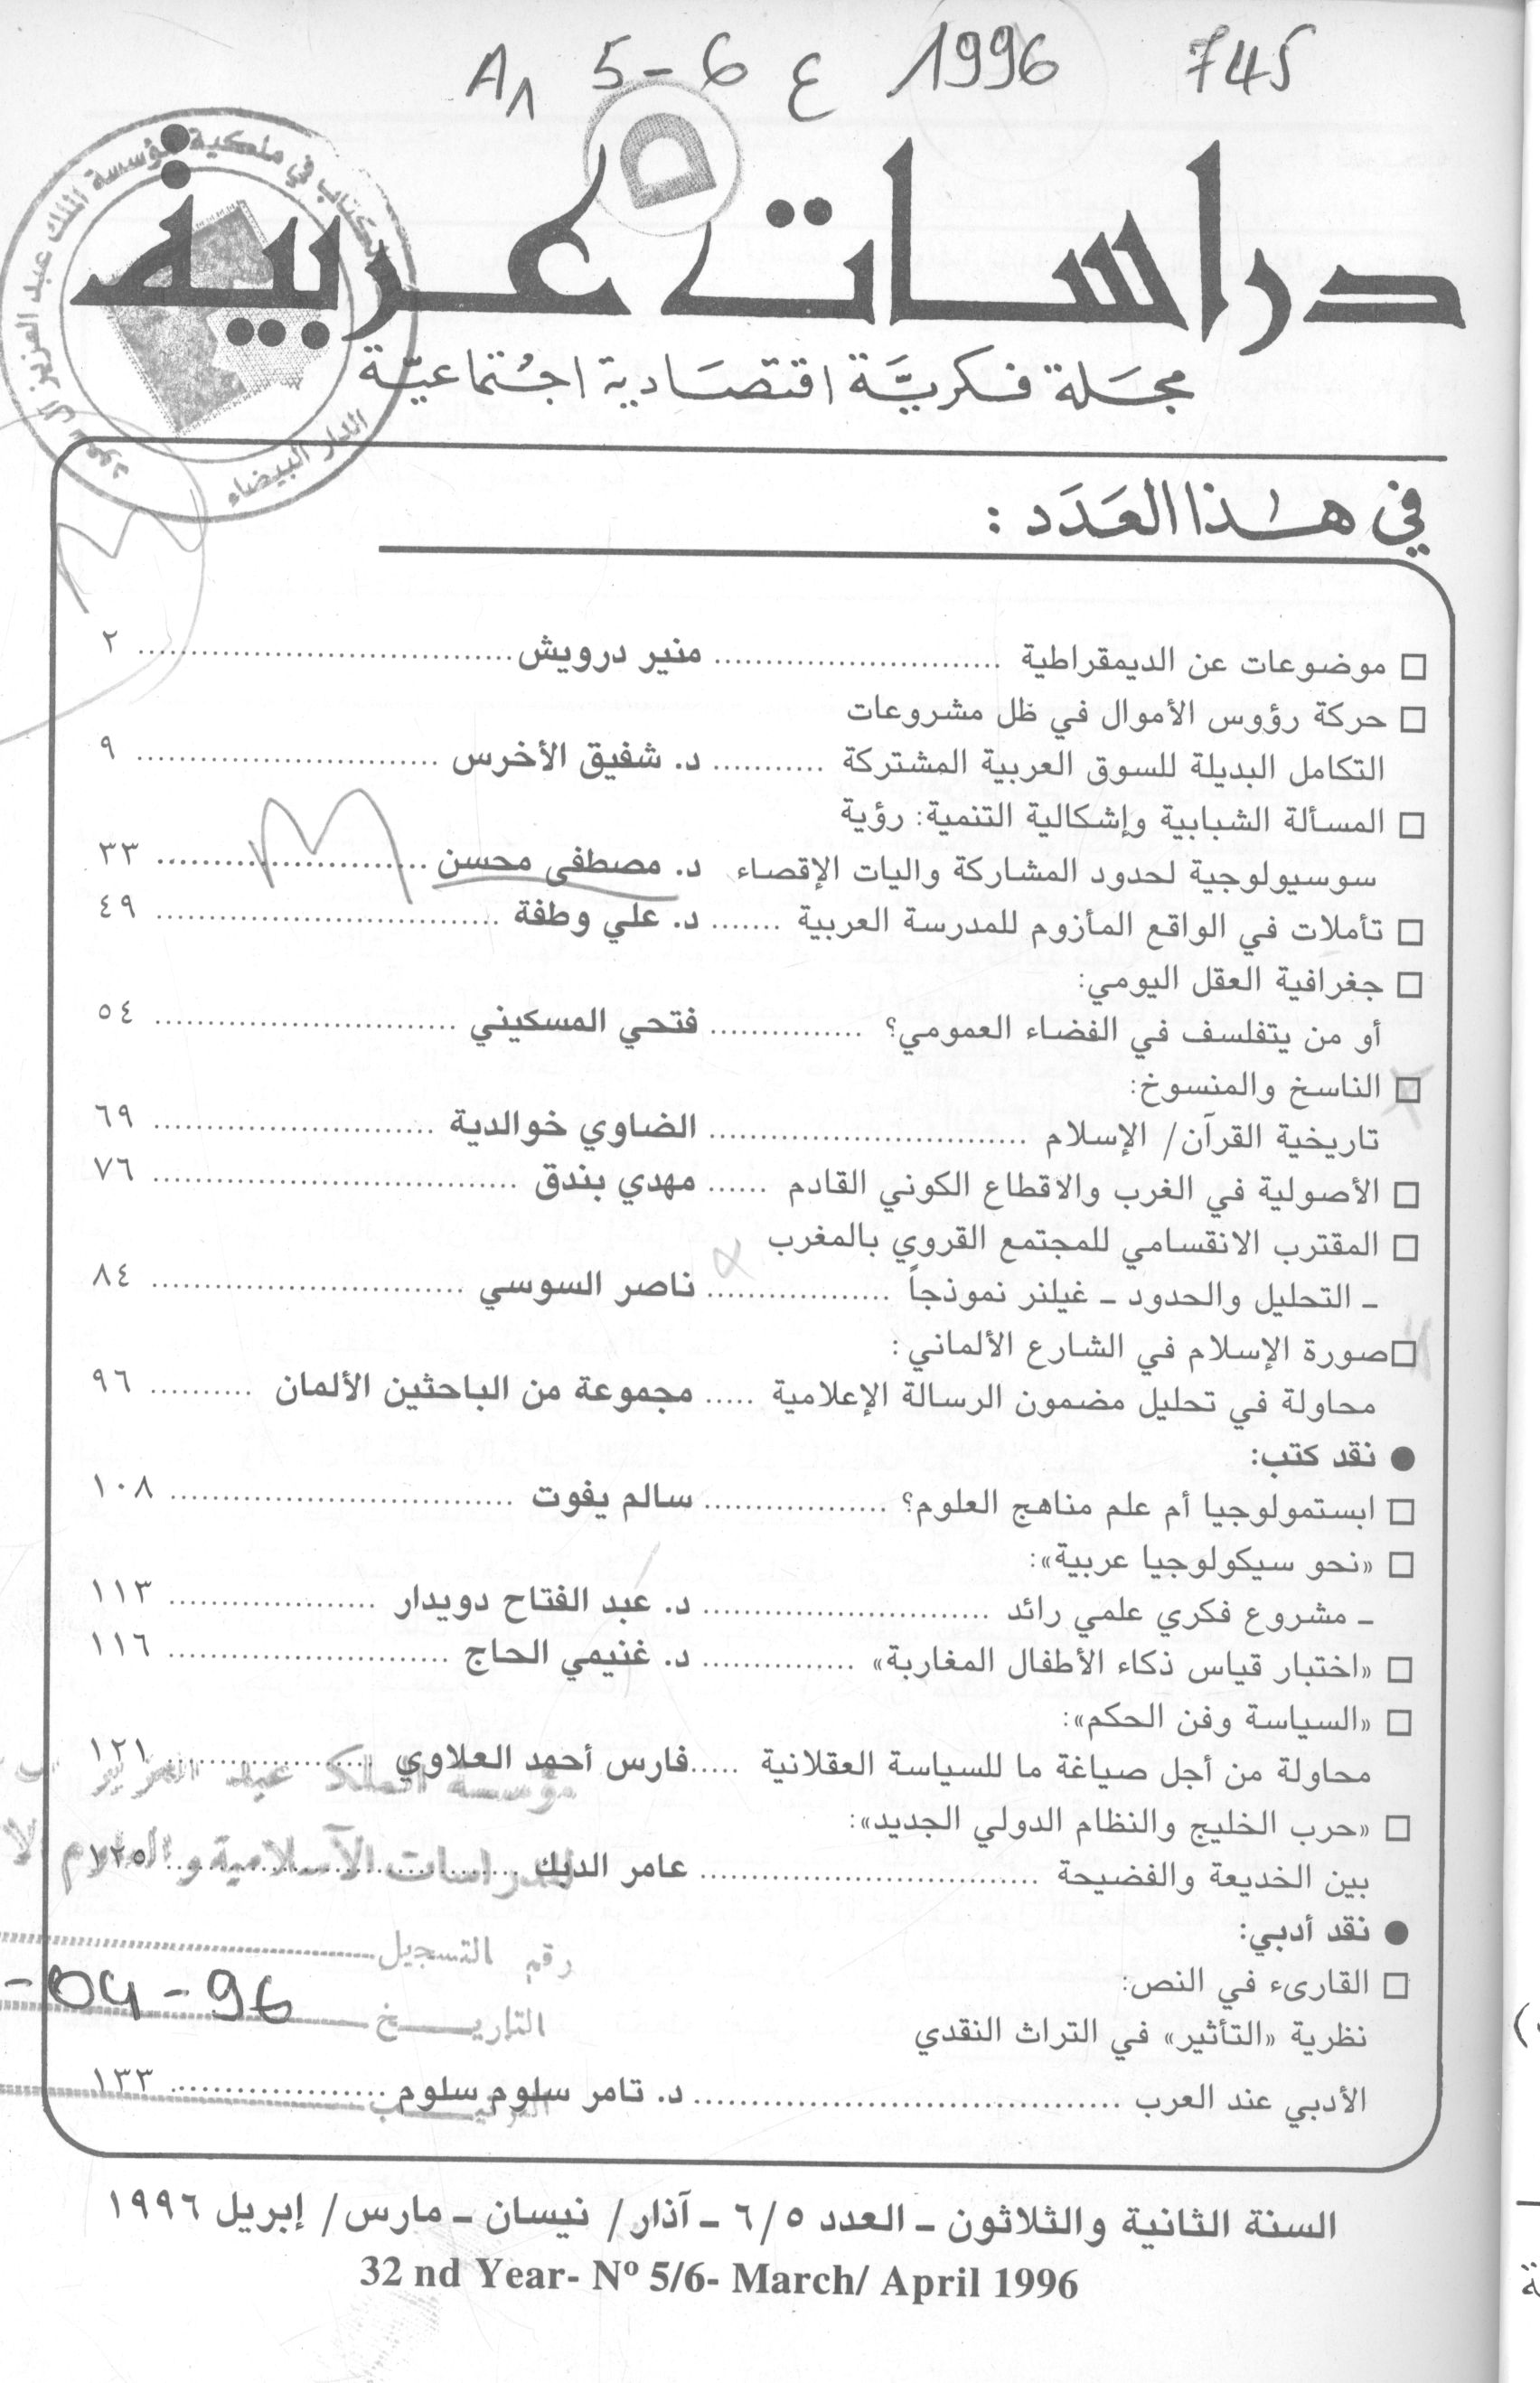 A1 5-6 ع 1996 745
الكتاب في ملكية مؤسسة الملك عبد العزيز آل سعود
الدار البيضاء
دراسات عربية
مجلة فكرية اقتصادية اجتماعية
في هذا العدد :
□ موضوعات عن الديمقراطية ............ منير درويش ............ ٢
□ حركة رؤوس الأموال في ظل مشروعات
التكامل البديلة للسوق العربية المشتركة ........... د. شفيق الأخرس ............ ٩
□ المسألة الشبابية وإشكالية التنمية: رؤية
سوسيولوجية لحدود المشاركة واليات الإقصاء د. مصطفى محسن ............ ٣٣
□ تأملات في الواقع المأزوم للمدرسة العربية ....... د. علي وطفة ............ ٤٩
□ جغرافية العقل اليومي:
أو من يتفلسف في الفضاء العمومي؟ ............ فتحي المسكيني ............ ٥٤
□ الناسخ والمنسوخ:
تاريخية القرآن/ الإسلام ............ الضاوي خوالدية ............ ٦٩
□ الأصولية في الغرب والاقطاع الكوني القادم ...... مهدي بندق ............ ٧٦
□ المقترب الانقسامي للمجتمع القروي بالمغرب
ـ التحليل والحدود ـ غيلنر نموذجاً ............ ناصر السوسي ............ ٨٤
□ صورة الإسلام في الشارع الألماني:
محاولة في تحليل مضمون الرسالة الإعلامية ..... مجموعة من الباحثين الألمان .......... ٩٦
● نقد كتب:
□ ابستمولوجيا أم علم مناهج العلوم؟ ............ سالم يفوت ............ ١٠٨
□ «نحو سيكولوجيا عربية»:
ـ مشروع فكري علمي رائد ............ د. عبد الفتاح دويدار ............ ١١٣
□ «اختبار قياس ذكاء الأطفال المغاربة» ............ د. غنيمي الحاج ............ ١١٦
□ «السياسة وفن الحكم»:
محاولة من أجل صياغة ما للسياسة العقلانية ..... فارس أحمد العلاوي ............ ١٢١
مؤسسة الملك عبد العزيز
□ «حرب الخليج والنظام الدولي الجديد»:
بين الخديعة والفضيحة ............ عامر الديك ............ ١٢٥
للدراسات الاسلامية والعلوم
● نقد أدبي:
رقم التسجيل
□ القارىء في النص:
التاريخ -04-96
نظرية «التأثير» في التراث النقدي
الأدبي عند العرب ............ د. تامر سلوم سلوم ............ ١٣٣
السنة الثانية والثلاثون ـ العدد ٥/ ٦ ـ آذار/ نيسان ـ مارس/ إبريل ١٩٩٦
32 nd Year- Nº 5/6- March/ April 1996